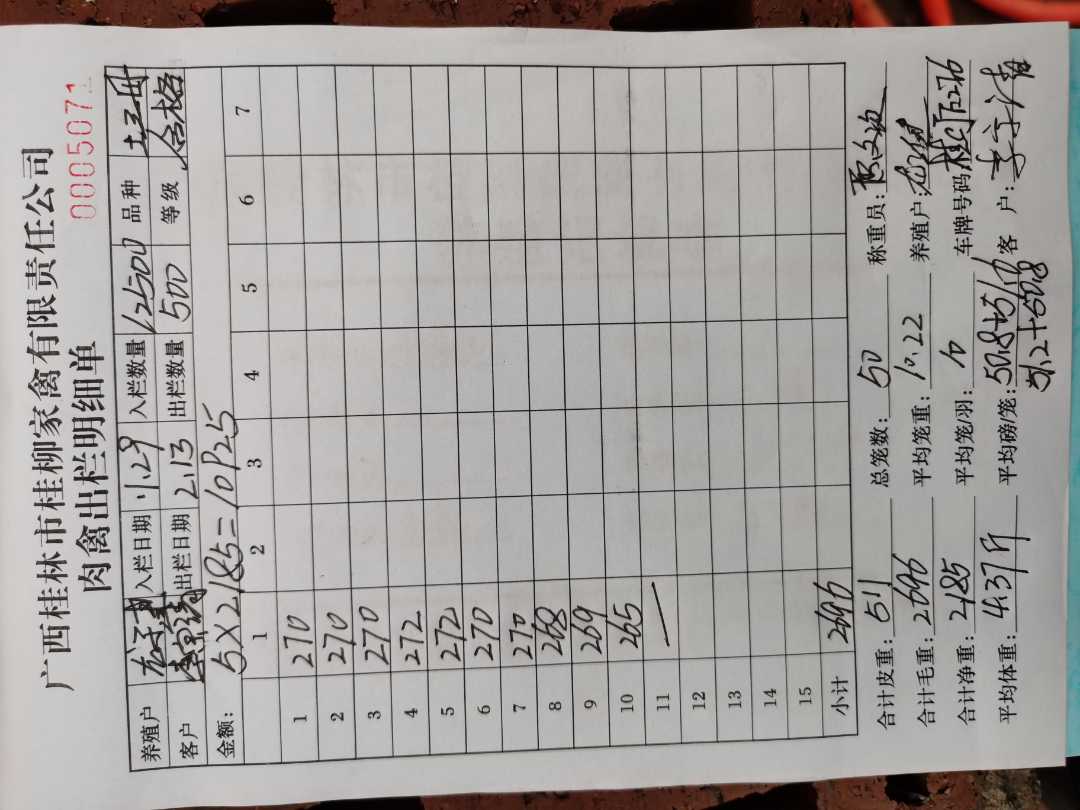 广西桂林市桂柳家禽有限责任公司
肉禽出栏明细单
0005071
养殖户 入栏日期 11.29 入栏数量 12500 品种 土三月
客户 出栏日期 2.13 出栏数量 500 等级 合格
金额： 5×2185=10925
1 2 3 4 5 6 7
1 270
2 270
3 270
4 272
5 272
6 270
7 270
8 268
9 269
10 265
11 —
12
13
14
15
小计 2696
合计皮重：511 总笼数：50 称重员：
合计毛重：2696 平均笼重：10.22 养殖户：
合计净重：2185 平均笼/羽：10 车牌号码：
平均体重：4.37斤 平均磅/笼：50.8+51/10 客 户：
51.2+50.8